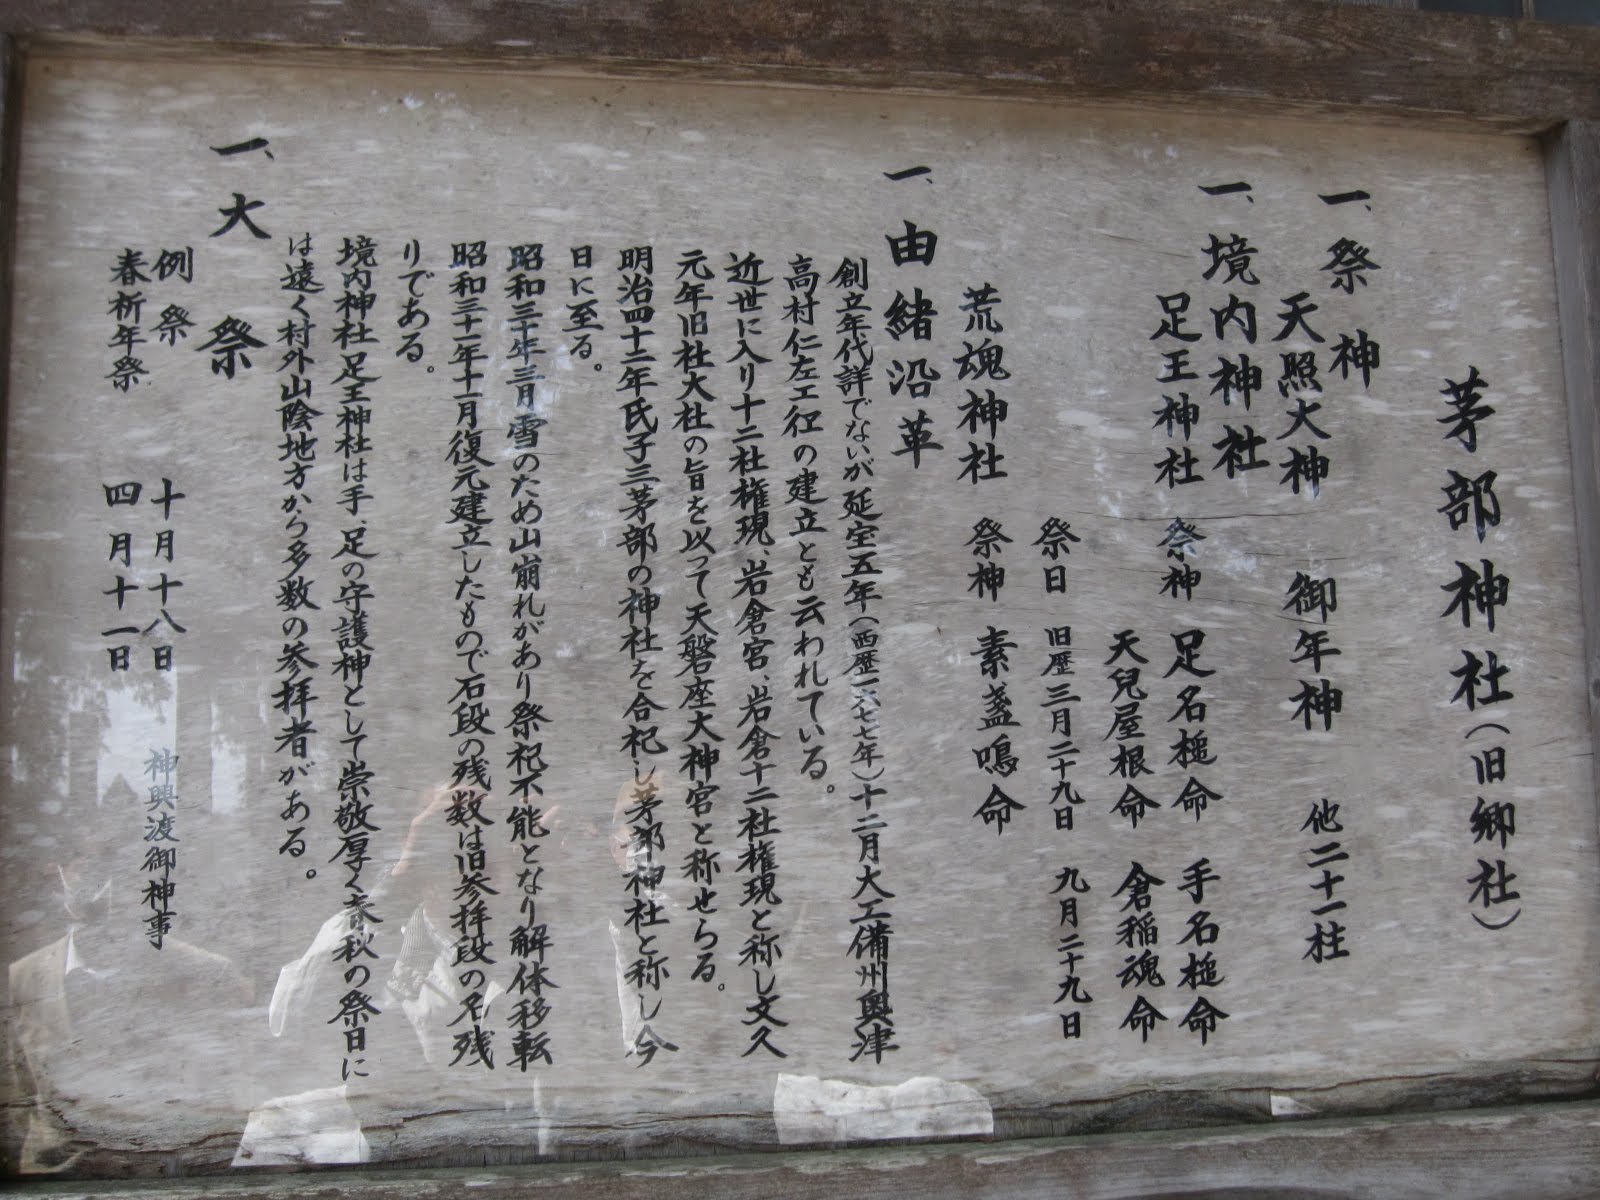 茅部神社（旧郷社）
一、祭神
天照大神　御年神　他二十一柱
一、境内神社
足王神社　祭神　足名槌命　手名槌命
天兒屋根命　倉稲魂命
祭日　旧歴三月二十九日　九月二十九日
荒魂神社　祭神　素盞鳴命
一、由緒沿革
創立年代詳でないが延宝五年（西歴一六七七年）十二月大工備州奥津
高村仁左エ㏌の建立とも云われている。
近世に入り十二社権現、岩倉宮、岩倉十二社権現と称し文久
元年旧社大社の旨を以って天磐座大神宮と称せらる。
明治四十二年氏子三茅部の神社を合祀し茅部神社と称し今
日に至る。
昭和三十年三月雪のため山崩れがあり祭祀不能となり解体移転
昭和三十一年十一月復元建立したもので石段の残数は旧参拝段の名残
りである。
境内神社足王神社は手、足の守護神として崇敬厚く春秋の祭日に
は遠く村外山陰地方から多数の参拝者がある。
一、大祭
例祭　十月十八日　神興渡御神事
春祈年祭　四月十一日